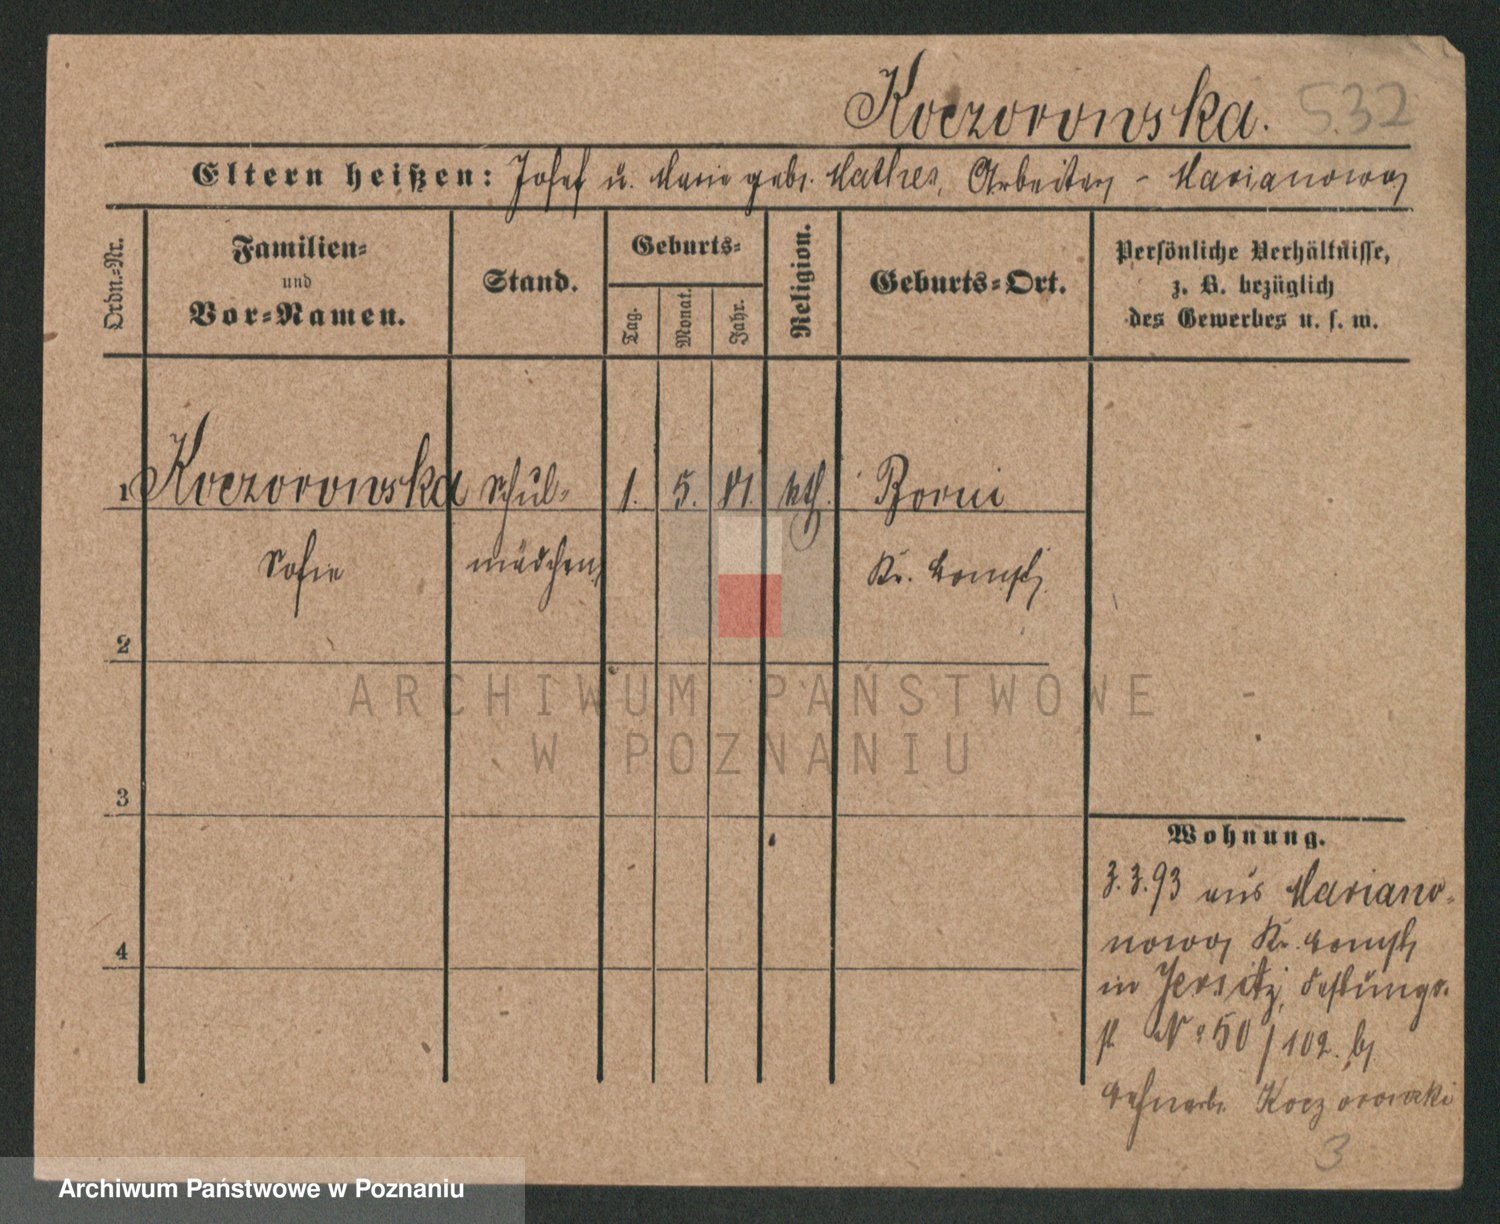 Koczorowska. 532
Eltern heißen: Josef u. Marie gebr. Mathes, Arbeiter, - Marianowo,
Ordn.-Nr.
Familien-
und
Vor-Namen.
Stand.
Geburts-
Tag.
Monat.
Jahr.
Religion.
Geburts-Ort.
Persönliche Verhältnisse,
z. B. bezüglich
des Gewerbes u. s. w.
1 Koczorowska Schul- 1. 5. 81. kth. Borui
Sofie mädchen, Kr. Bomst,
2
3
4
Wohnung.
3.3.93 aus Mariano-
nowo, Kr. Bomst,
in Jersitz, Festungs-
st No 50/102. b,
Koczorowski
3
ARCHIWUM PAŃSTWOWE -
W POZNANIU
Archiwum Państwowe w Poznaniu